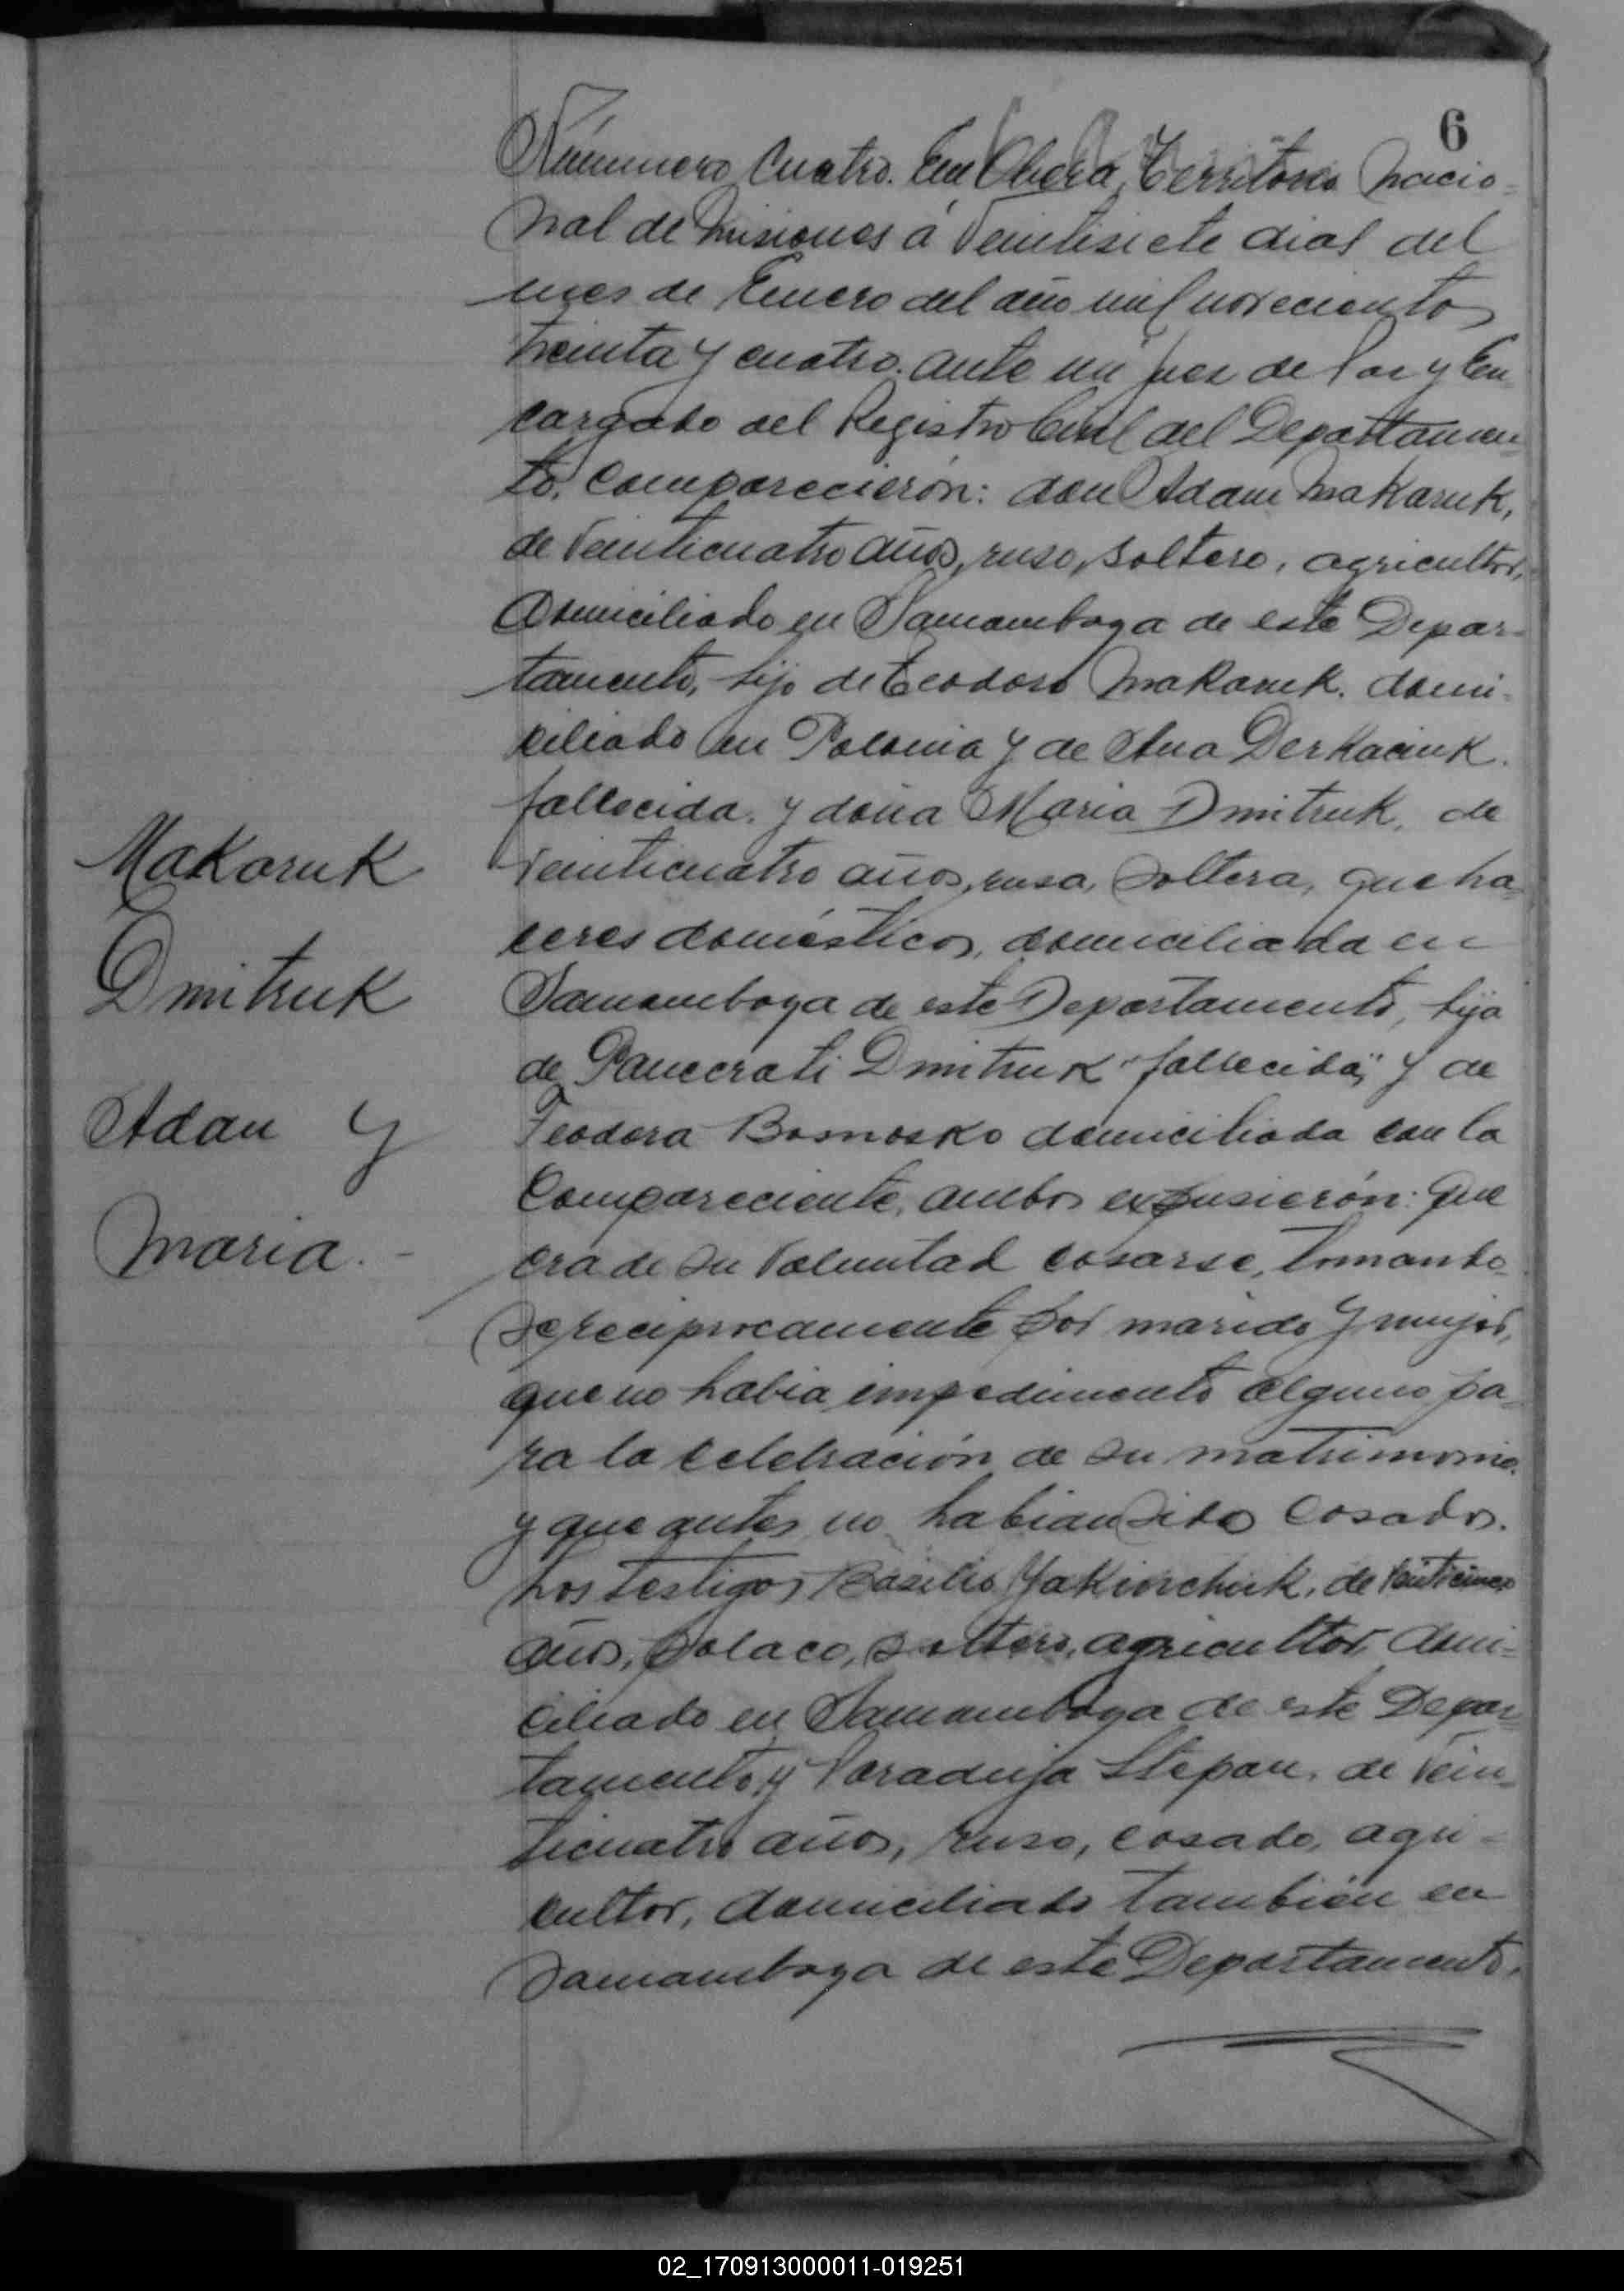 6
Número Cuatro. En Oberá, Territorio Nacio-
nal de Misiones á Veintisiete dias del
mes de Enero del año mil novecientos
treinta y cuatro. ante mi Juez de Paz y En
cargado del Registro Civil del Departamen-
to, Comparecierón: don Adam Makaruk,
de Veinticuatro años, ruso, soltero, agricultor,
domiciliado en Samambaya de este Depar-
tamento, hijo de Teodoro Makaruk. domi-
ciliado en Polonia y de Ana Derkaciuk.
fallecida. y doña Maria Dmitruk, de
Veinticuatro años, rusa, Soltera, queha-
ceres domésticos, domiciliada en
Samambaya de este Departamento, hija
de Pancerati Dmitruk "fallecido," y de
Teodora Bosnosko domiciliada con la
Compareciente, ambos expusierón: que
era de su Voluntad casarse, tomando-
se reciprocamente por marido y mujer,
que no habia impedimento alguno pa-
ra la celebración de su matrimonio.
y que antes no habian sido Casados.
Los testigos Basilio Yakinchuk, de Veinticinco
años, polaco, soltero, agricultor, domi-
ciliado en Samambaya de este Depar-
tamento, y Stepan, de Vein-
ticuatro años, ruso, casado, agri-
cultor, domiciliado también en
Samambaya de este Departamento,
Makaruk
Dmitruk
Adan y
Maria.-
02_170913000011-019251